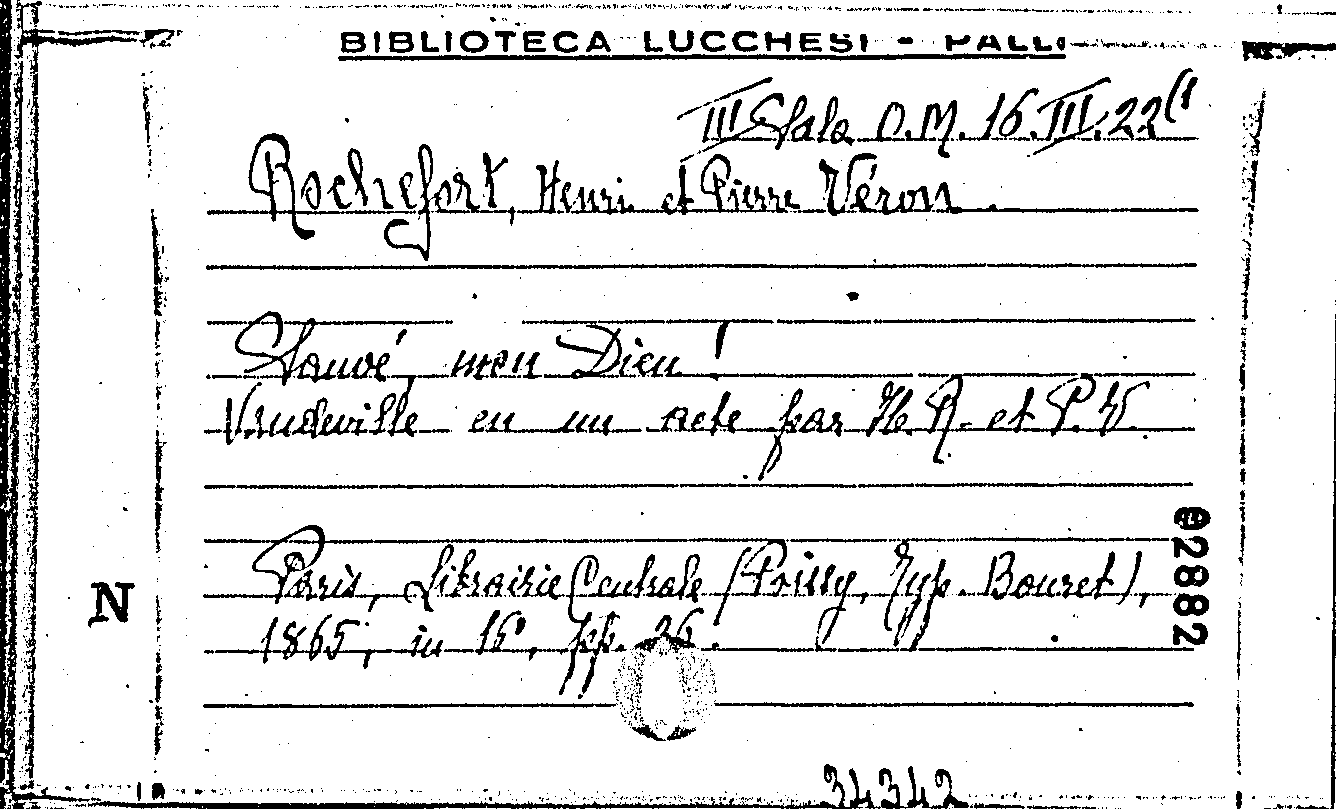 BIBLIOTECA LUCCHESI - PALLI
III Sala O.M. 16.III.22(1
Rochefort, Henri et Pierre Véron.
Sauvé, mon Dieu!
Vaudeville en un acte par H. R. et P. V.
Paris, Librairie Centrale (Poissy, Typ. Bouret),
1865, in 16°, pp. 36.
N
02882
34342